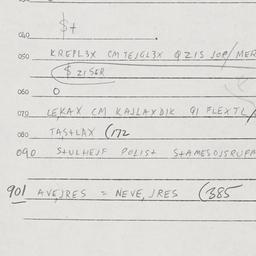 $t
040
050 KREPL3X CM TEJGL3X QZIS JOP/MER
$ ZISER
060 O
070 LEKAX CM KAJLAXDIK QI FLEXTL/
080 TAS+LAX (172
090 S+ULHEJF POLIS+ S+AMESOJSRUPA
901 AVEJRES = NEVE, JRES (385